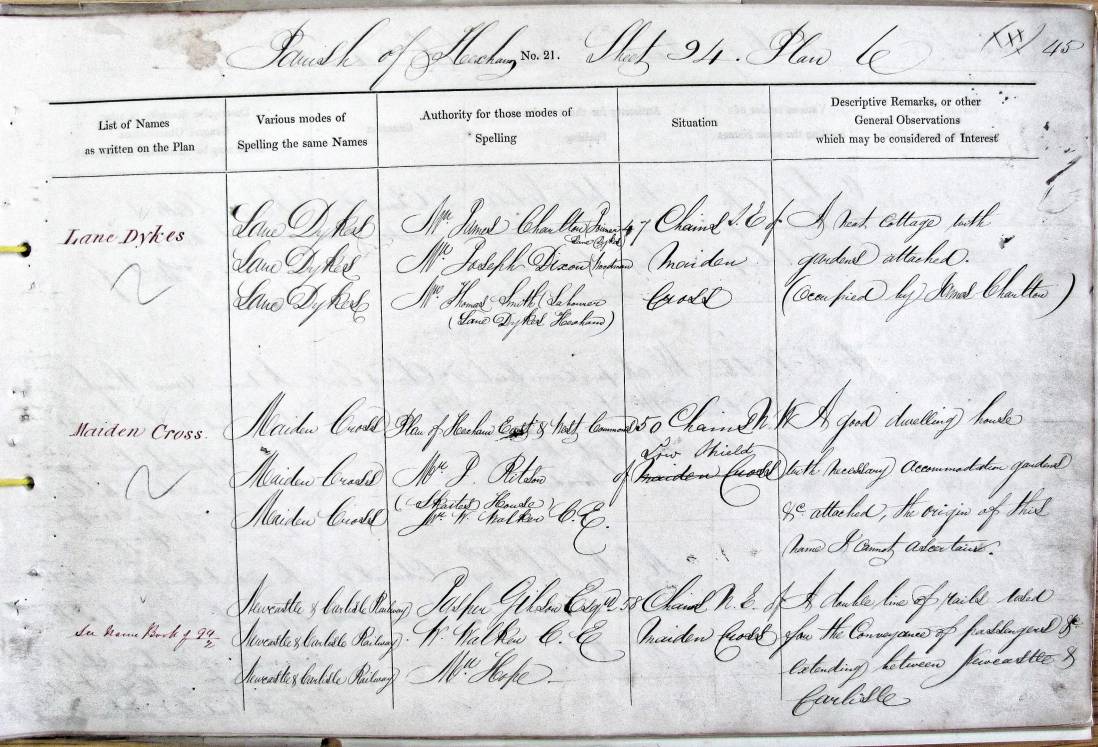 Parish of Hexham No. 21. Sheet 94. Plan 6
45
List of Names
as written on the Plan
Various modes of
Spelling the same Names
Authority for those modes of
Spelling
Situation
Descriptive Remarks, or other
General Observations
which may be considered of Interest
Lane Dykes
Lane Dykes
Lane Dykes
Lane Dykes
Mr. James Charlton Farmer
Lane Dykes
Mr. Joseph Dixon
Mr. Thomas Smith (Labourer
(Lane Dykes Hexham)
47 Chains S.E of
Maiden
Cross
A neat cottage with
gardens attached.
(Occupied by James Charlton)
Maiden Cross.
Maiden Cross
Maiden Cross
Maiden Cross
Plan of Hexham East & West Commons
Mr. J. Ritson
House)
Mr. W. Walker C.E.
50 Chains N.W
Low Shield
of Maiden Cross
A good dwelling house
with necessary accommodation gardens
&c. attached, the origin of this
name I cannot ascertain.
See Name Book of
Newcastle & Carlisle Railway
Newcastle & Carlisle Railway
Newcastle & Carlisle Railway
Jasper Gibson Esqre.
W. Walker C. E
Mr. Hope
58 Chains N.E. of
Maiden Cross
A double line of rails used
for the Conveyance of passengers &c
extending between Newcastle &
Carlisle